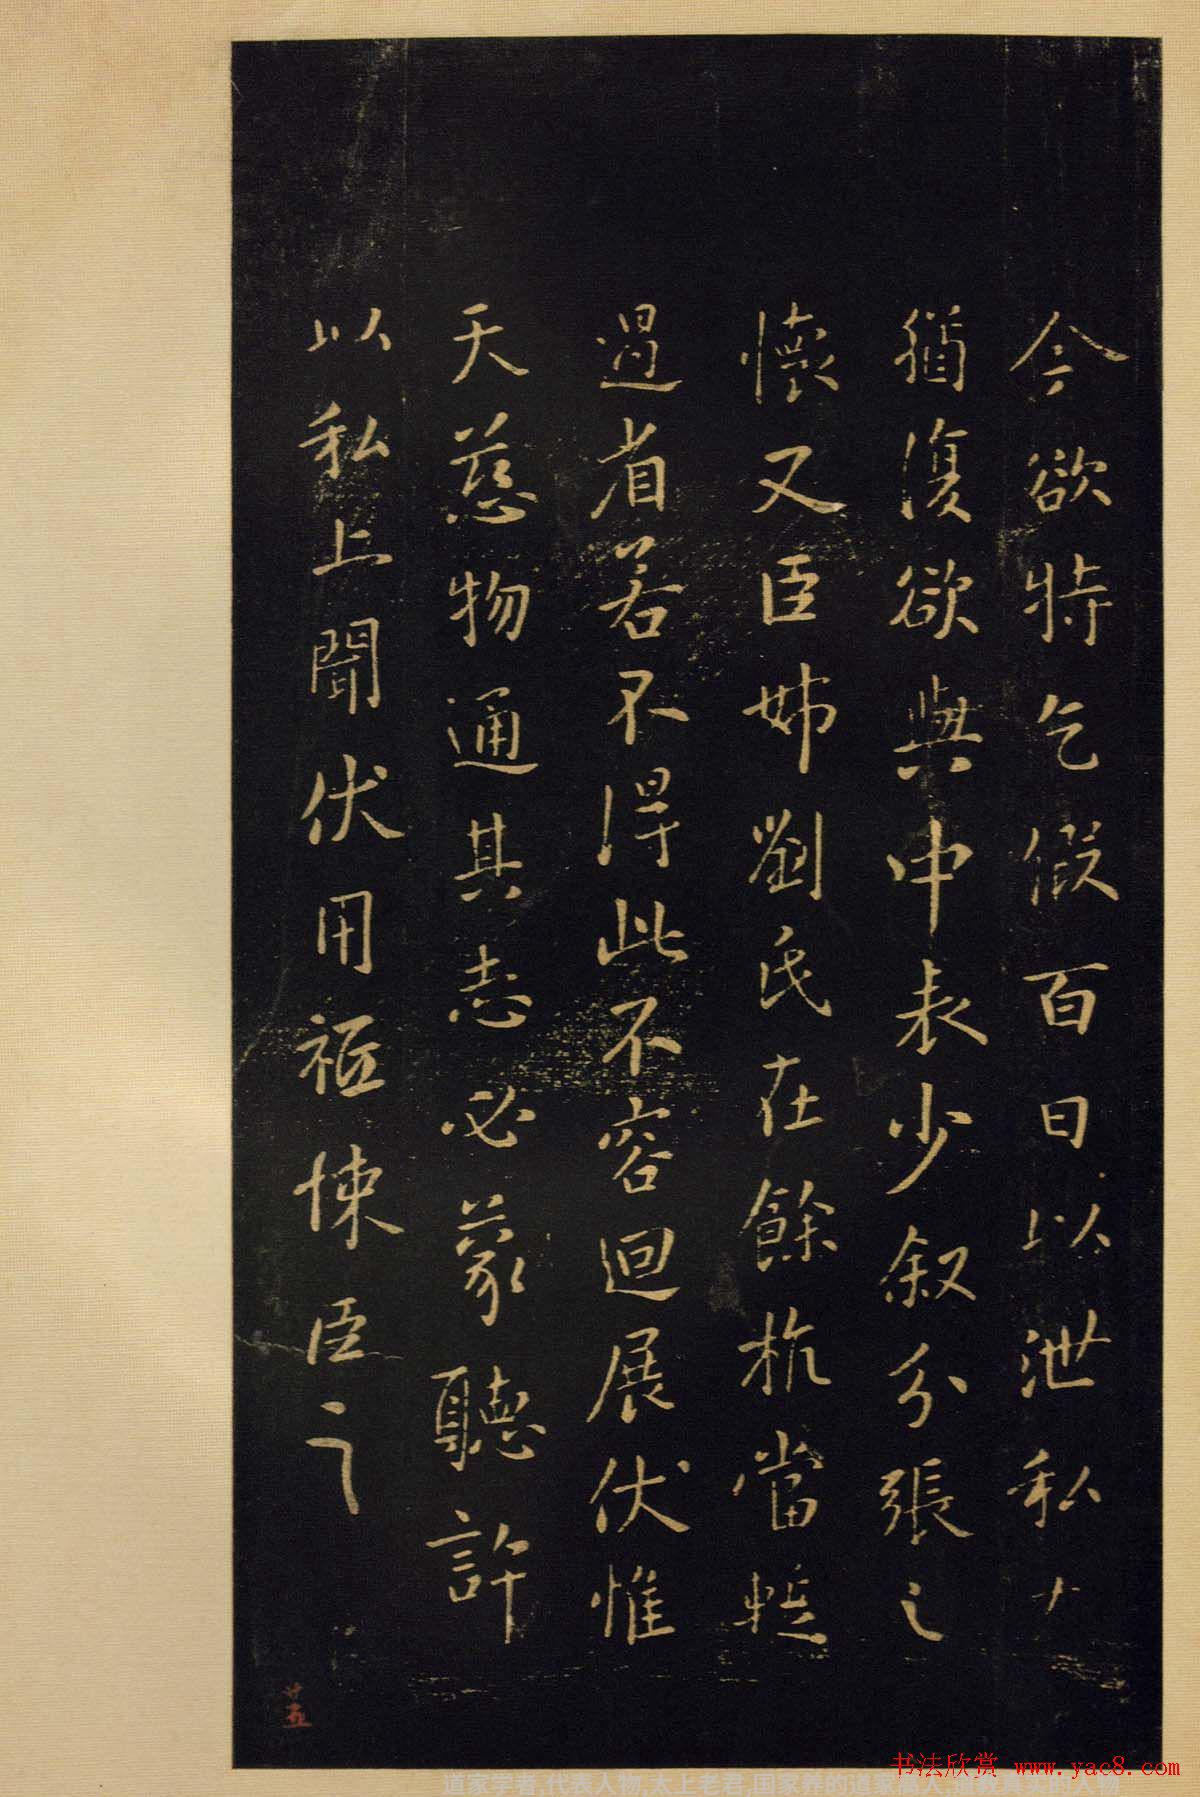 今欲特乞假百日以泄私
猶復欲與中表少叙分張之
懷又臣姊劉氏在餘杭當蹔
過省若不得此不容迴展伏惟
天慈物通其志必蒙聽許
以私上聞伏用悚臣之
书法欣赏 www.yac8.com
道家学者,代表人物,太上老君,国家养的道家高人